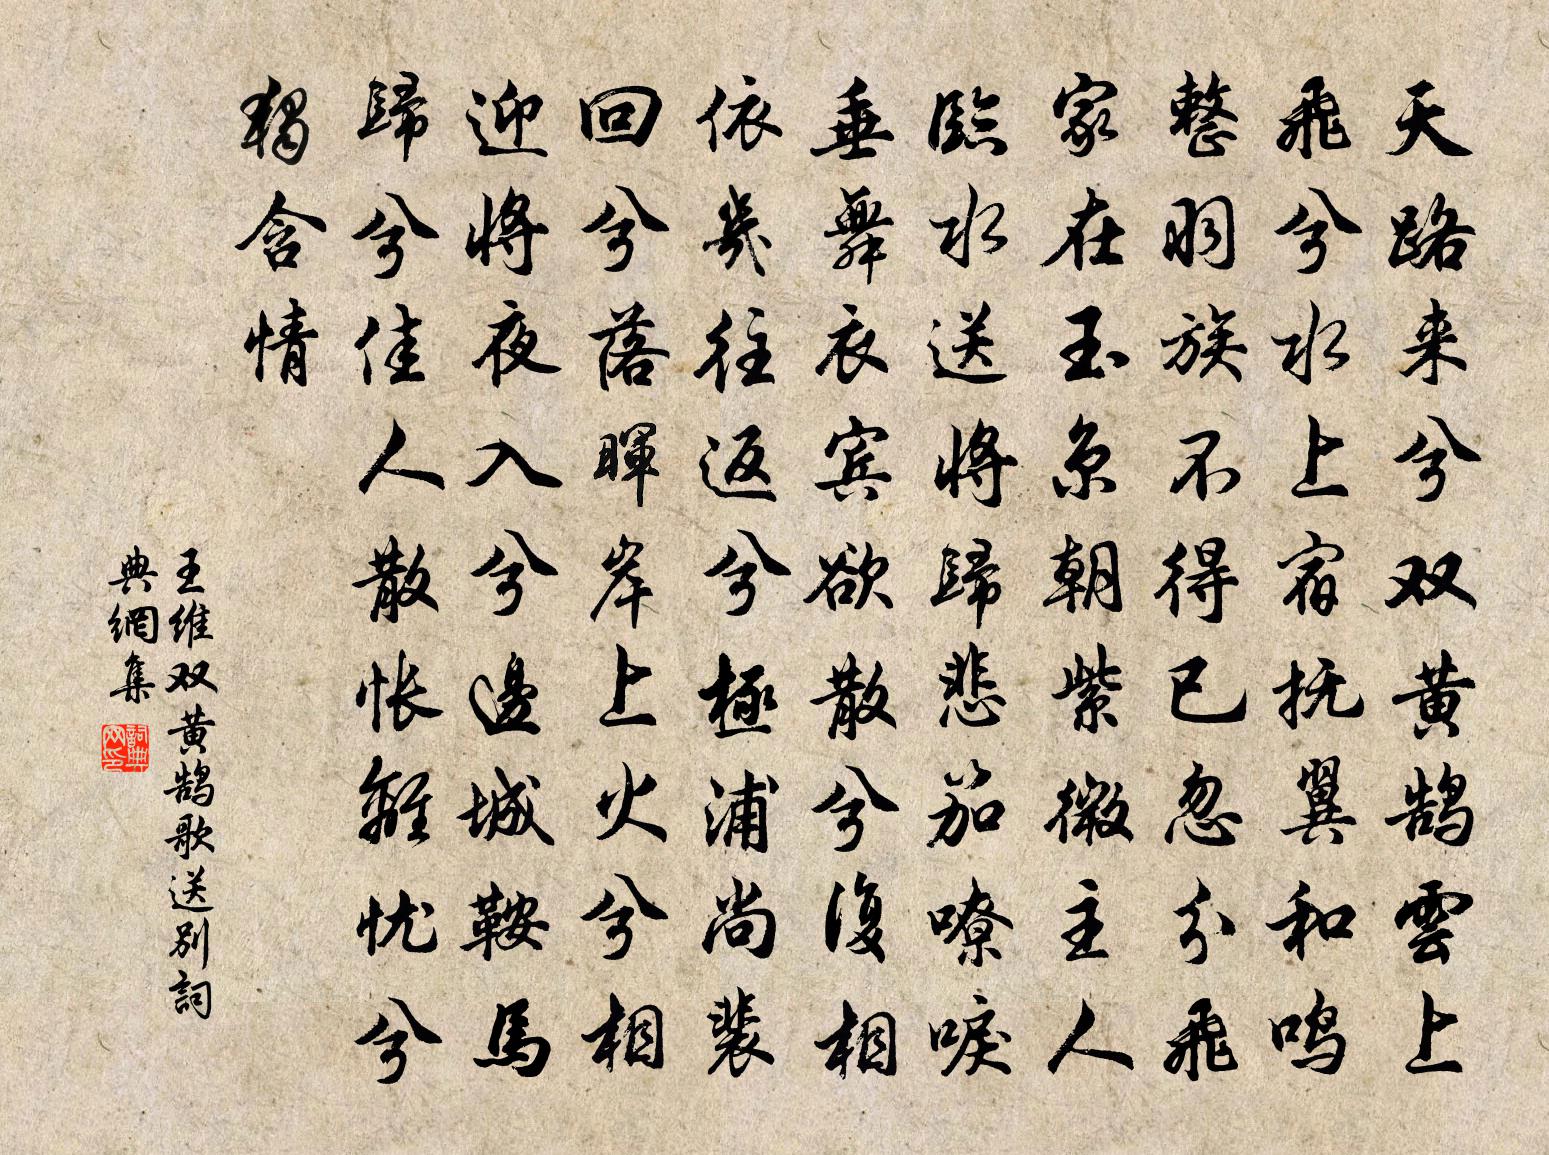 天路来兮双黄鹄雲上
飛兮水上宿抚翼和鸣
整羽族不得已忽分飛
家在玉京朝紫微主人
臨水送将歸悲笳嘹唳
垂舞衣宾欲散兮復相
依幾往返兮極浦尚裴
回兮落暉岸上火兮相
迎将夜入兮邊城鞍馬
歸兮佳人散怅離忧兮
獨含情
王维双黄鹄歌送别詞
典網集
詞典网